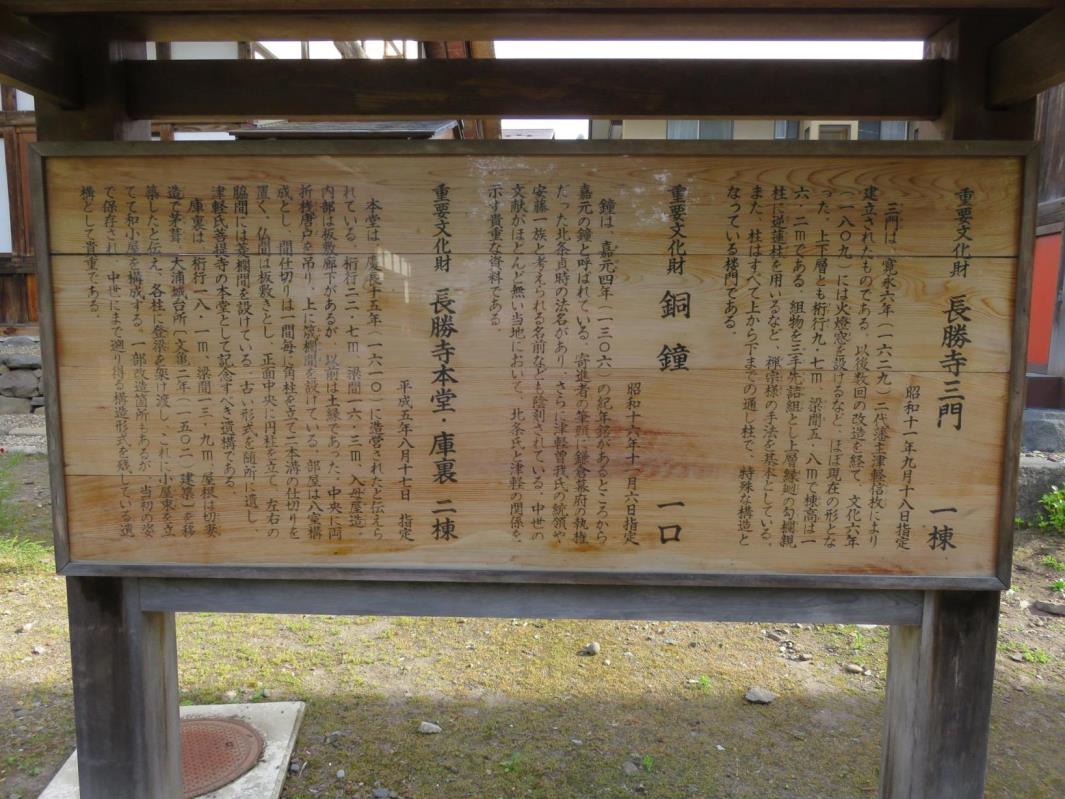 重要文化財 長勝寺三門 一棟
昭和十一年九月十八日指定
三門は、寛永六年（一六二九）二代藩主津軽信枚により
建立されたものである。以後数回の改造を経て、文化六年
（一八〇九）には火燈窓を設けるなど、ほぼ現在の形とな
った。上下層とも桁行九・七ｍ、梁間五・八ｍで棟高は一
六・二ｍである。組物を三手先詰組とし上層縁廻の勾欄親
柱に逆蓮柱を用いるなど、禅宗様の手法を基本としている。
また、柱はすべて上から下までの通し柱で、特殊な構造と
なっている楼門である。
重要文化財 銅鐘 一口
昭和十六年十一月六日指定
鐘は、嘉元四年（一三〇六）の紀年銘があるところから
嘉元の鐘と呼ばれている。寄進者の筆頭に鎌倉幕府の執権
だった北条貞時の法名があり、さらに津軽曽我氏の惣領や
安藤一族と考えられる名前なども陰刻されている。中世の
文献がほとんど無い当地において、北条氏と津軽の関係を
示す貴重な資料である。
重要文化財 長勝寺本堂・庫裏 二棟
平成五年八月十七日 指定
本堂は、慶長十五年（一六一〇）に造営されたと伝えら
れている。桁行二二・七ｍ、梁間一六・三ｍ、入母屋造。
内部は板敷廊下があるが、以前は土縁であった。中央に両
折桟唐戸を吊り、上に筬欄間を設けている。部屋は八室構
成とし、間仕切りは一間毎に角柱を立て二本溝の仕切りを
置く。仏間は板敷きとし、正面中央に円柱を立て、左右の
脇間には菱欄間を設けている。古い形式を随所に遺し、
津軽氏菩提寺の本堂として記念すべき遺構である。
庫裏は、桁行一八・一ｍ、梁間一三・九ｍ、屋根は切妻
造で茅葺、大浦城台所（文亀二年（一五〇二）建築）を移
築したと伝え、各柱に登梁を架け渡し、これに小屋束を立
てて和小屋を構成する。一部改造箇所もあるが、当初の姿
で保存され、中世にまで遡り得る構造形式を残している遺
構として貴重である。